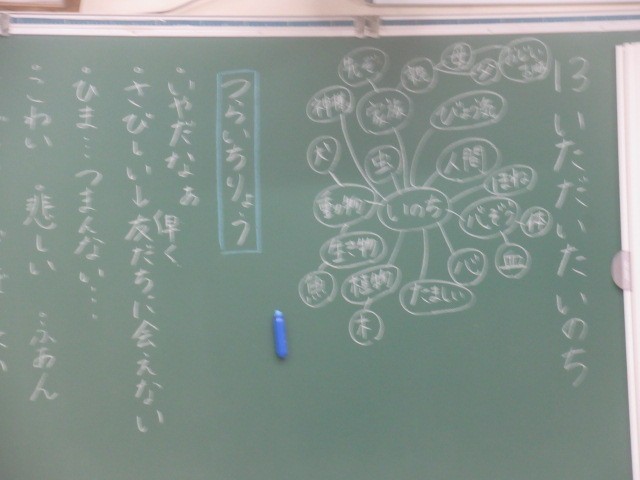 13 いただいたいのち
いのち
びょう気
人間
ほね
心ぞう
体
血
心
たましい
植物
木
生き物
魚
動物
犬
虫
家族
神様
先ぞ
親
母
父
つらいちりょう
・いやだなぁ
早く
・さびしい→友だちに会えない
・ひま…つまんない…
・こわい ・悲しい ・ふあん